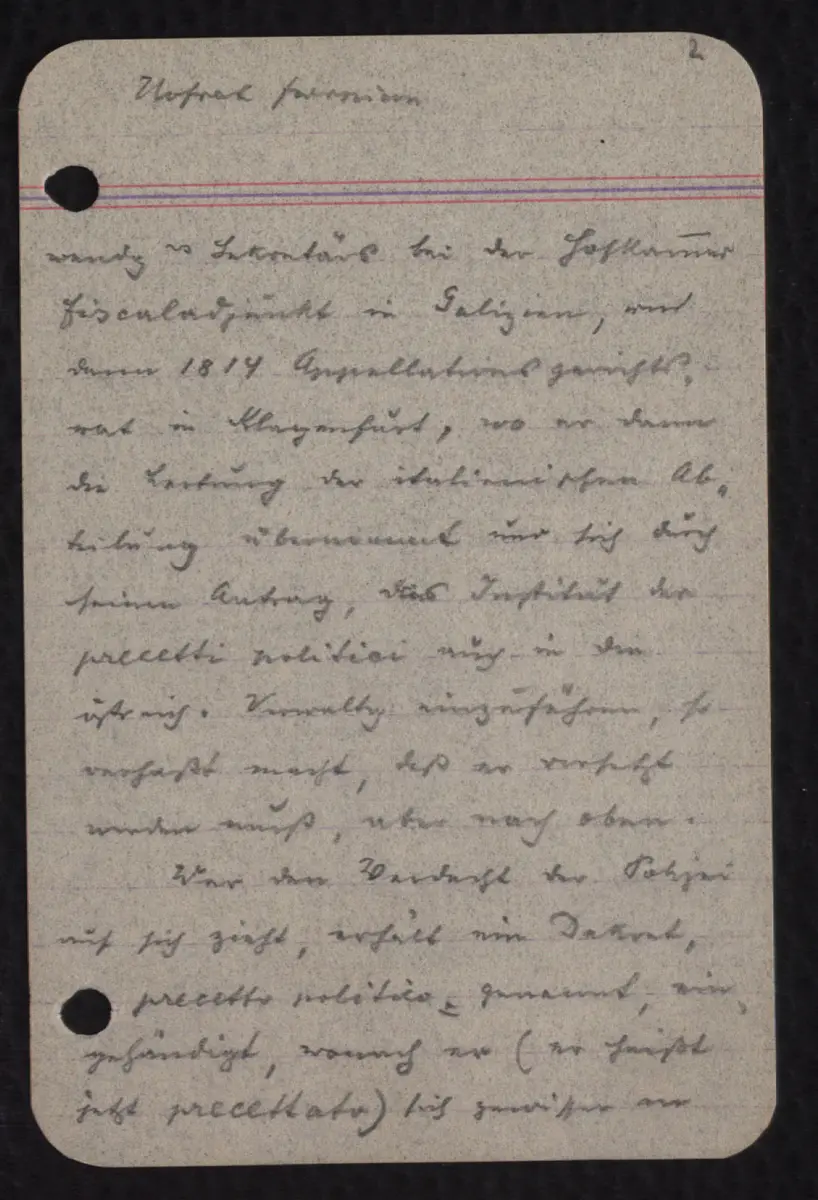 2
Hofrat
wendg Sekretärs bei der Hofkam̅er
Fiscaladjunkt in Galizien, wird
dann 1814 Appellationsgerichts-
rat in Klagenfurt, wo er dann
die Leitung der italienischen Ab-
teilung übernimmt und sich durch
seinen Antrag, das Institut der
precetti politici auch in der
östreich. Verwaltg einzuführen, so
verhaßt macht, daß er versetzt
werden muß, aber nach oben.
Wer den Verdacht der Polizei
auf sich zieht, erhält ein Dekret,
precetto politico genannt, ein-
gehändigt, wonach er (er heißt
jetzt precettato) sich gewisser